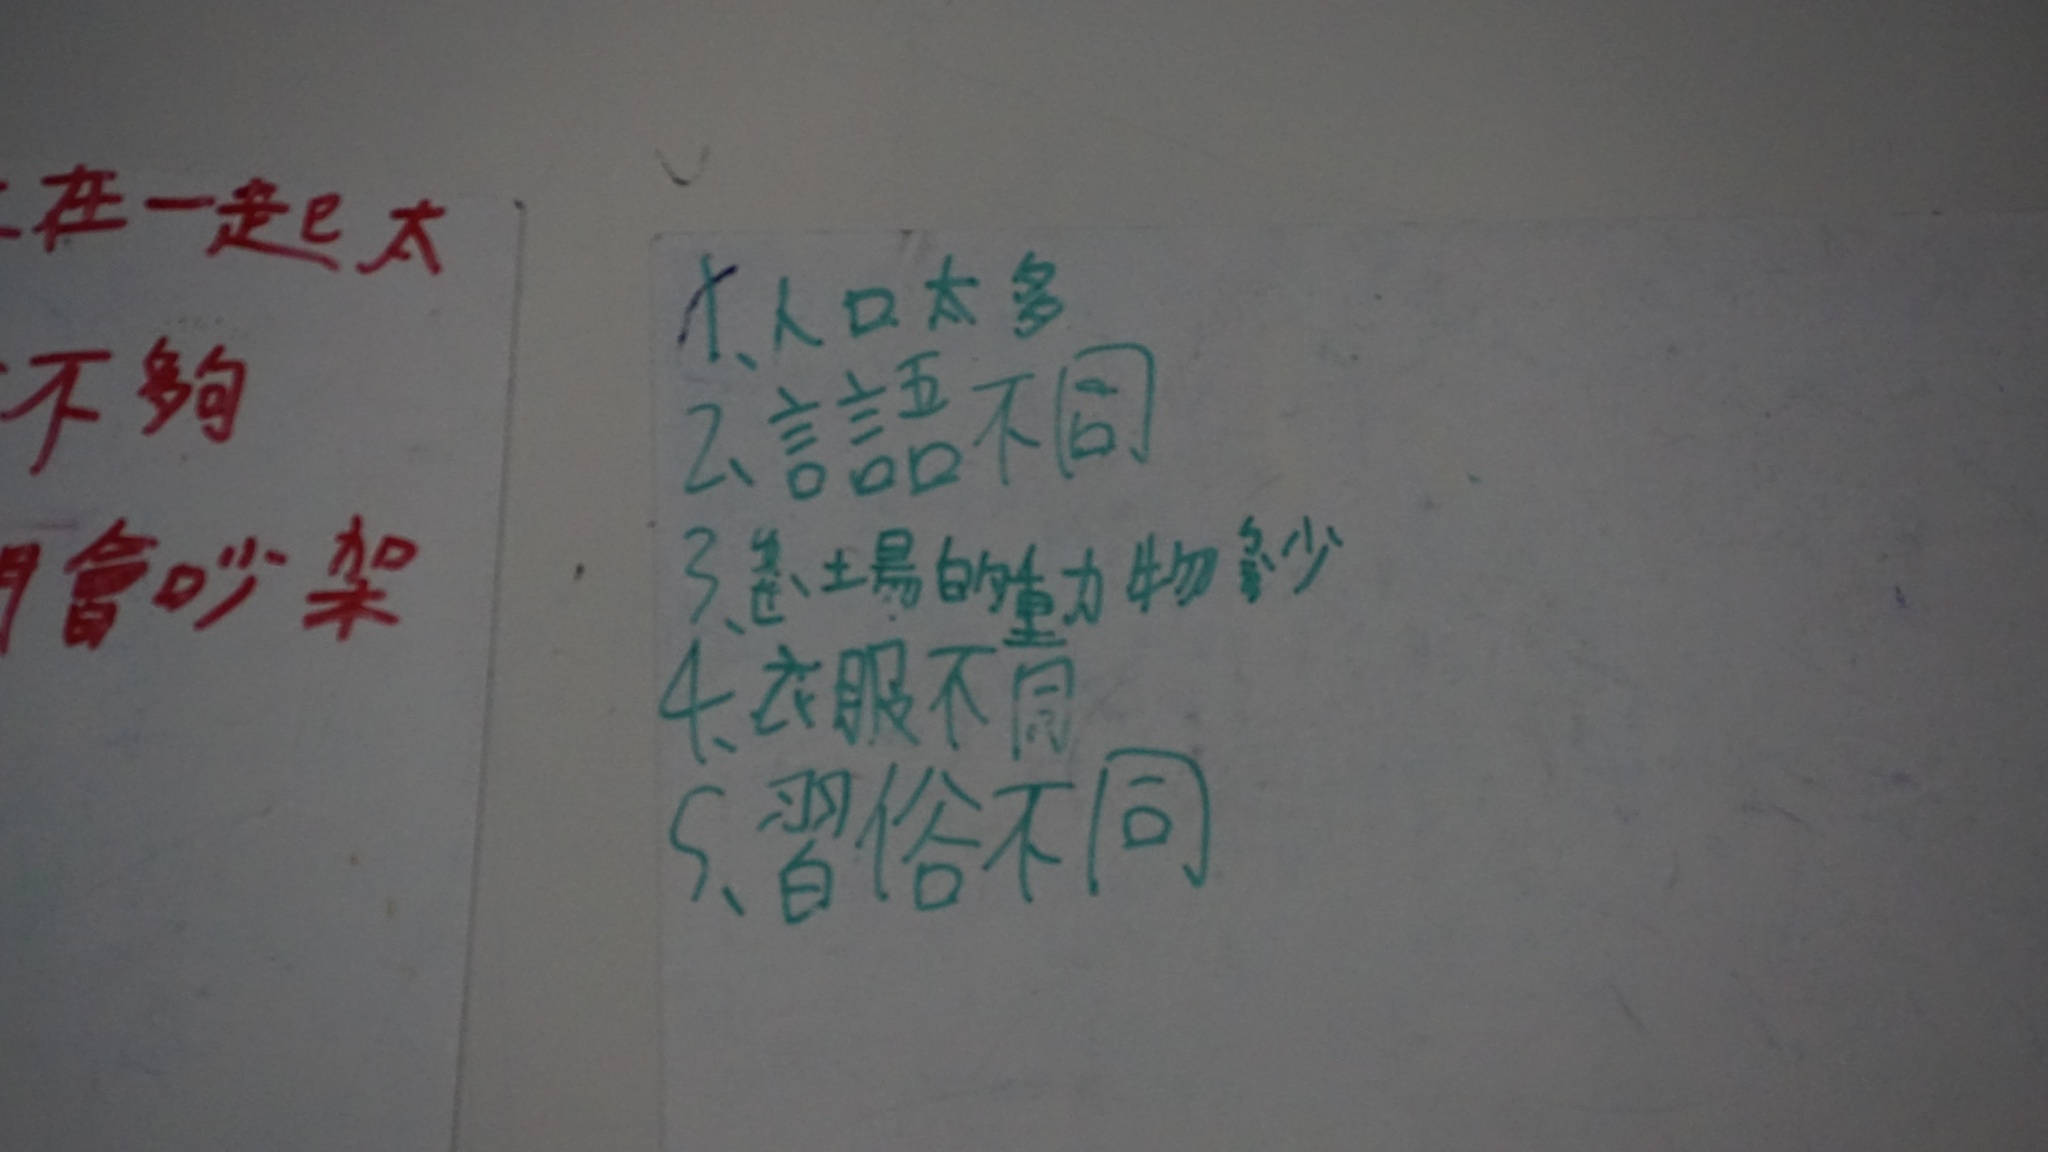 在一起太
不夠
們會吵架
1、人口太多
2、言語不同
3、土場的動物少
4、衣服不同
5、習俗不同